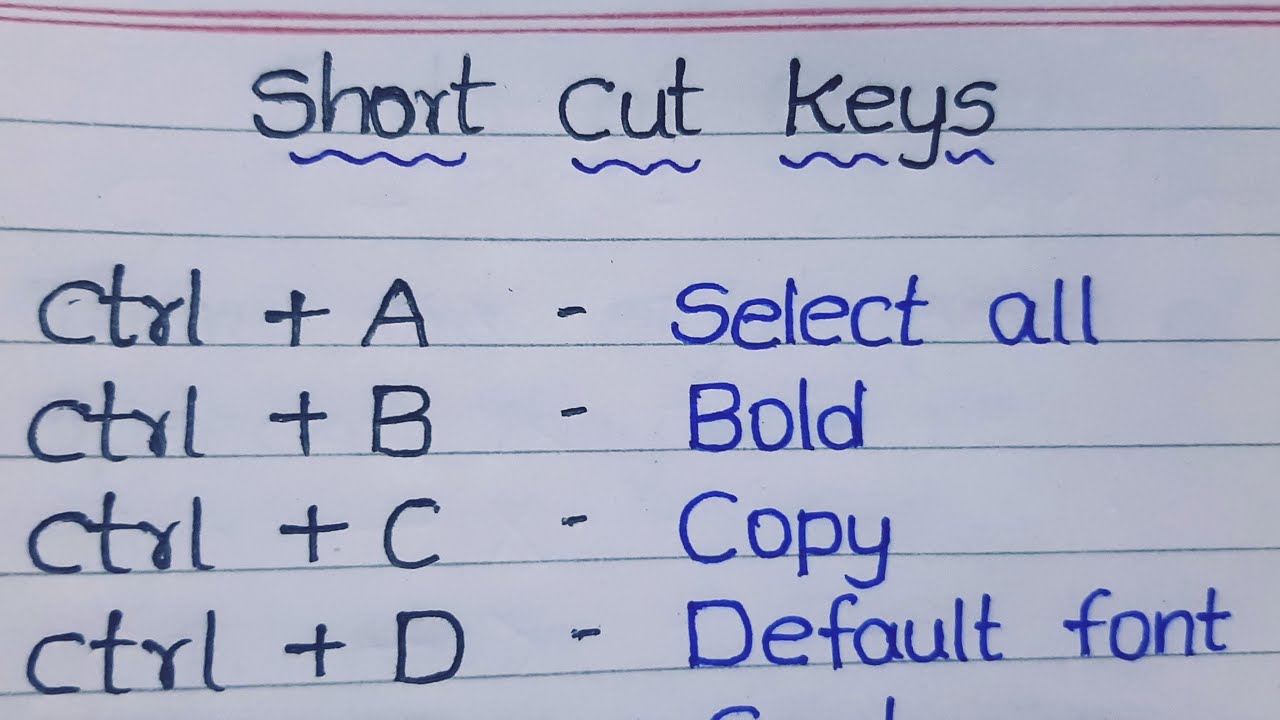 Short Cut Keys
Ctrl + A - Select all
Ctrl + B - Bold
Ctrl + C - Copy
Ctrl + D - Default font